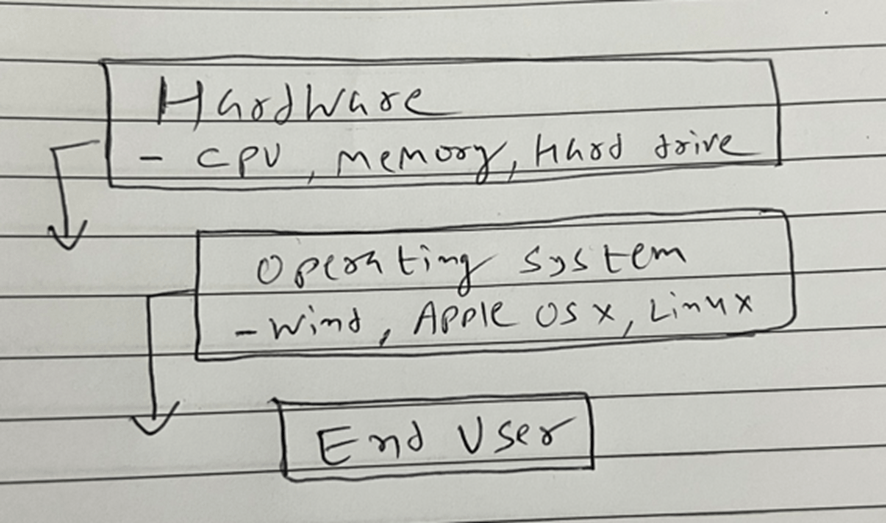 Hardware
- CPU, Memory, Hard drive
Operating System
- Wind, Apple OS X, Linux
End User